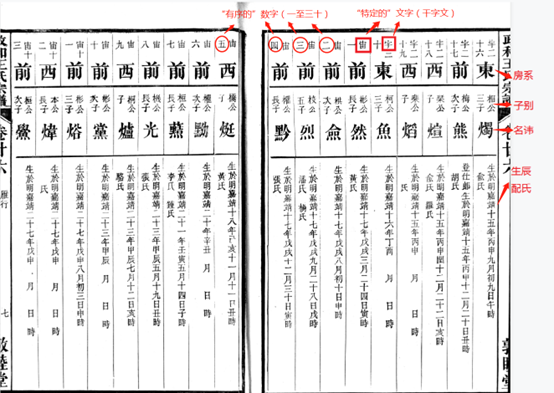 "有序的" 数字（一至三十）
"特定的" 文字（千字文）
房系
子别
名讳
生辰
配氏
宇二十六
東
三子
燭
生於明嘉靖十五年丙申九月初九日午時
俞氏
宇二十七
前
次子
熊
登仕郎生於明嘉靖十五年丙申十二月二十日丑時
胡氏
宇二十
西
子
煊
生於明嘉靖十五年丙申閏十二月二十二日亥時
俞氏 羅氏
宇二十
西
子
生於明嘉靖十五年丙申
宇三十
東
魚
生於明嘉靖十六年丁酉 月 日 時
宙一
前
彬公長子
然
生於明嘉靖十七年戊戌三月二十四日寅時
宙二
前
根公次子
生於明嘉靖十七年戊戌八月初十日申時
宙三
前
枝公五子
烈
生於明嘉靖十七年戊戌九月二十八日戌時
潘氏 楊氏
宙四
前
權公長子
黔
生於明嘉靖十七年戊戌十二月三十日寅時
張氏
政和王氏宗譜
卷廿六
雁行
七
敦睦堂
宙五
西
梅公子
烶
生於明嘉靖十八年己亥十一月十一日丑時
黄氏
宙六
前
次子
黝
生於明嘉靖二十年辛丑 月 日 時
宙七
前
長子
生於明嘉靖二十一年壬寅五月十四日子時
李氏 陳氏
宙八
前
長子
光
生於明嘉靖二十三年甲辰五月十九日丑時
張氏
宙九
西
子
爐
生於明嘉靖二十三年甲辰七月十二日亥時
駱氏
宙十
東
次子
黨
生於明嘉靖二十三年甲辰 月 日 時
宙十
前
三子
熔
生於明嘉靖二十七年戊申八月初三日申時
宙十
西
子
煒
生於明嘉靖二十七年戊申 月 日 時
宙十
前
次子
生於明嘉靖二十七年戊申 月 日 時